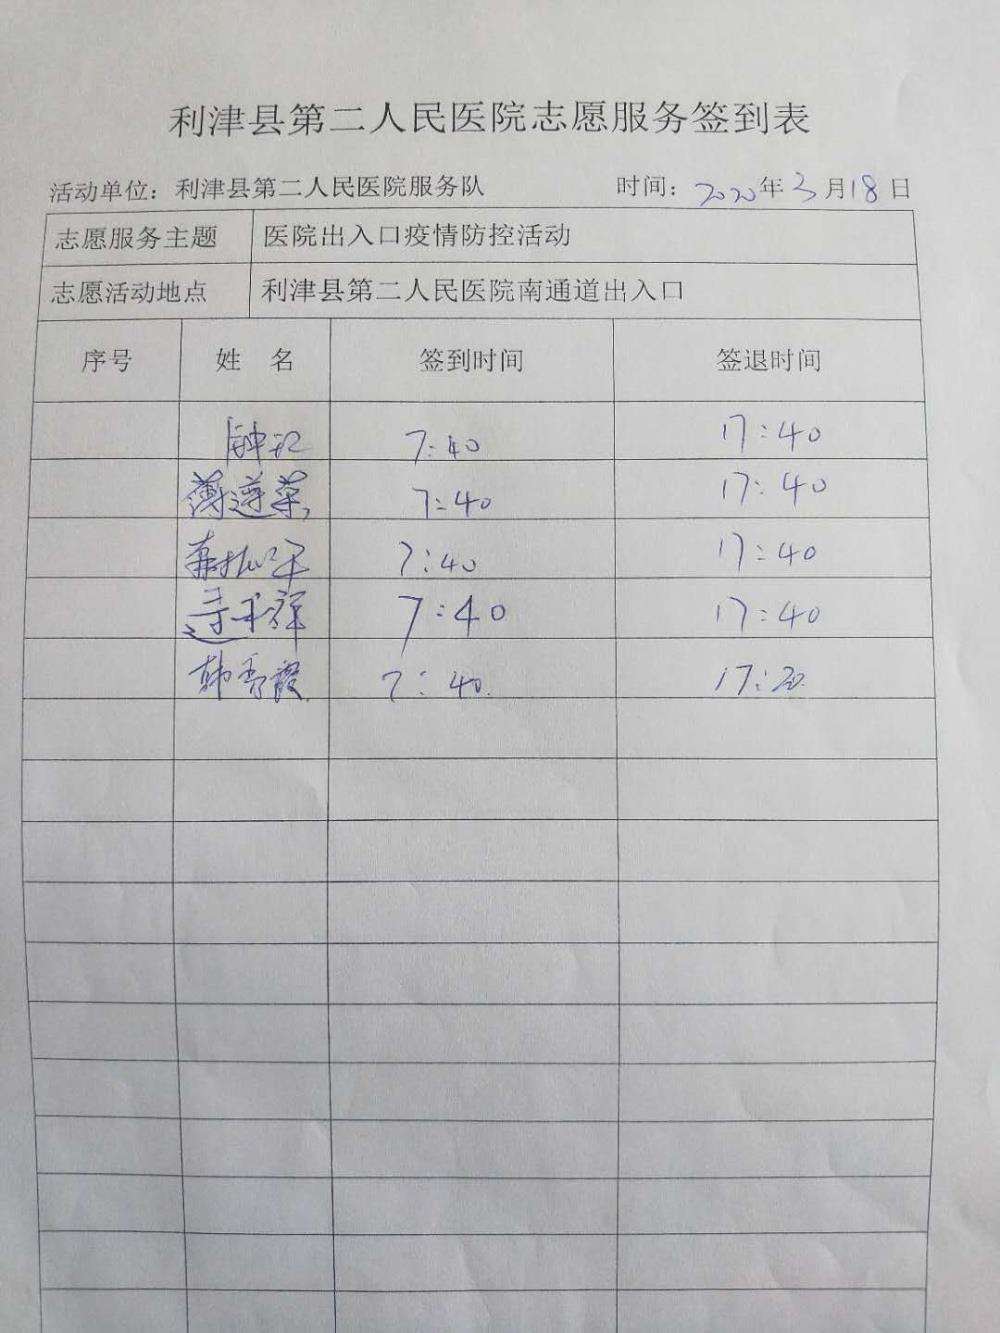 利津县第二人民医院志愿服务签到表
活动单位：利津县第二人民医院服务队 时间：2020年3月18日
志愿服务主题 医院出入口疫情防控活动
志愿活动地点 利津县第二人民医院南通道出入口
序号 姓 名 签到时间 签退时间
7:40 17:40
薄莲菜 7:40 17:40
7:40 17:40
7:40 17:40
韩秀霞 7:40 17:20